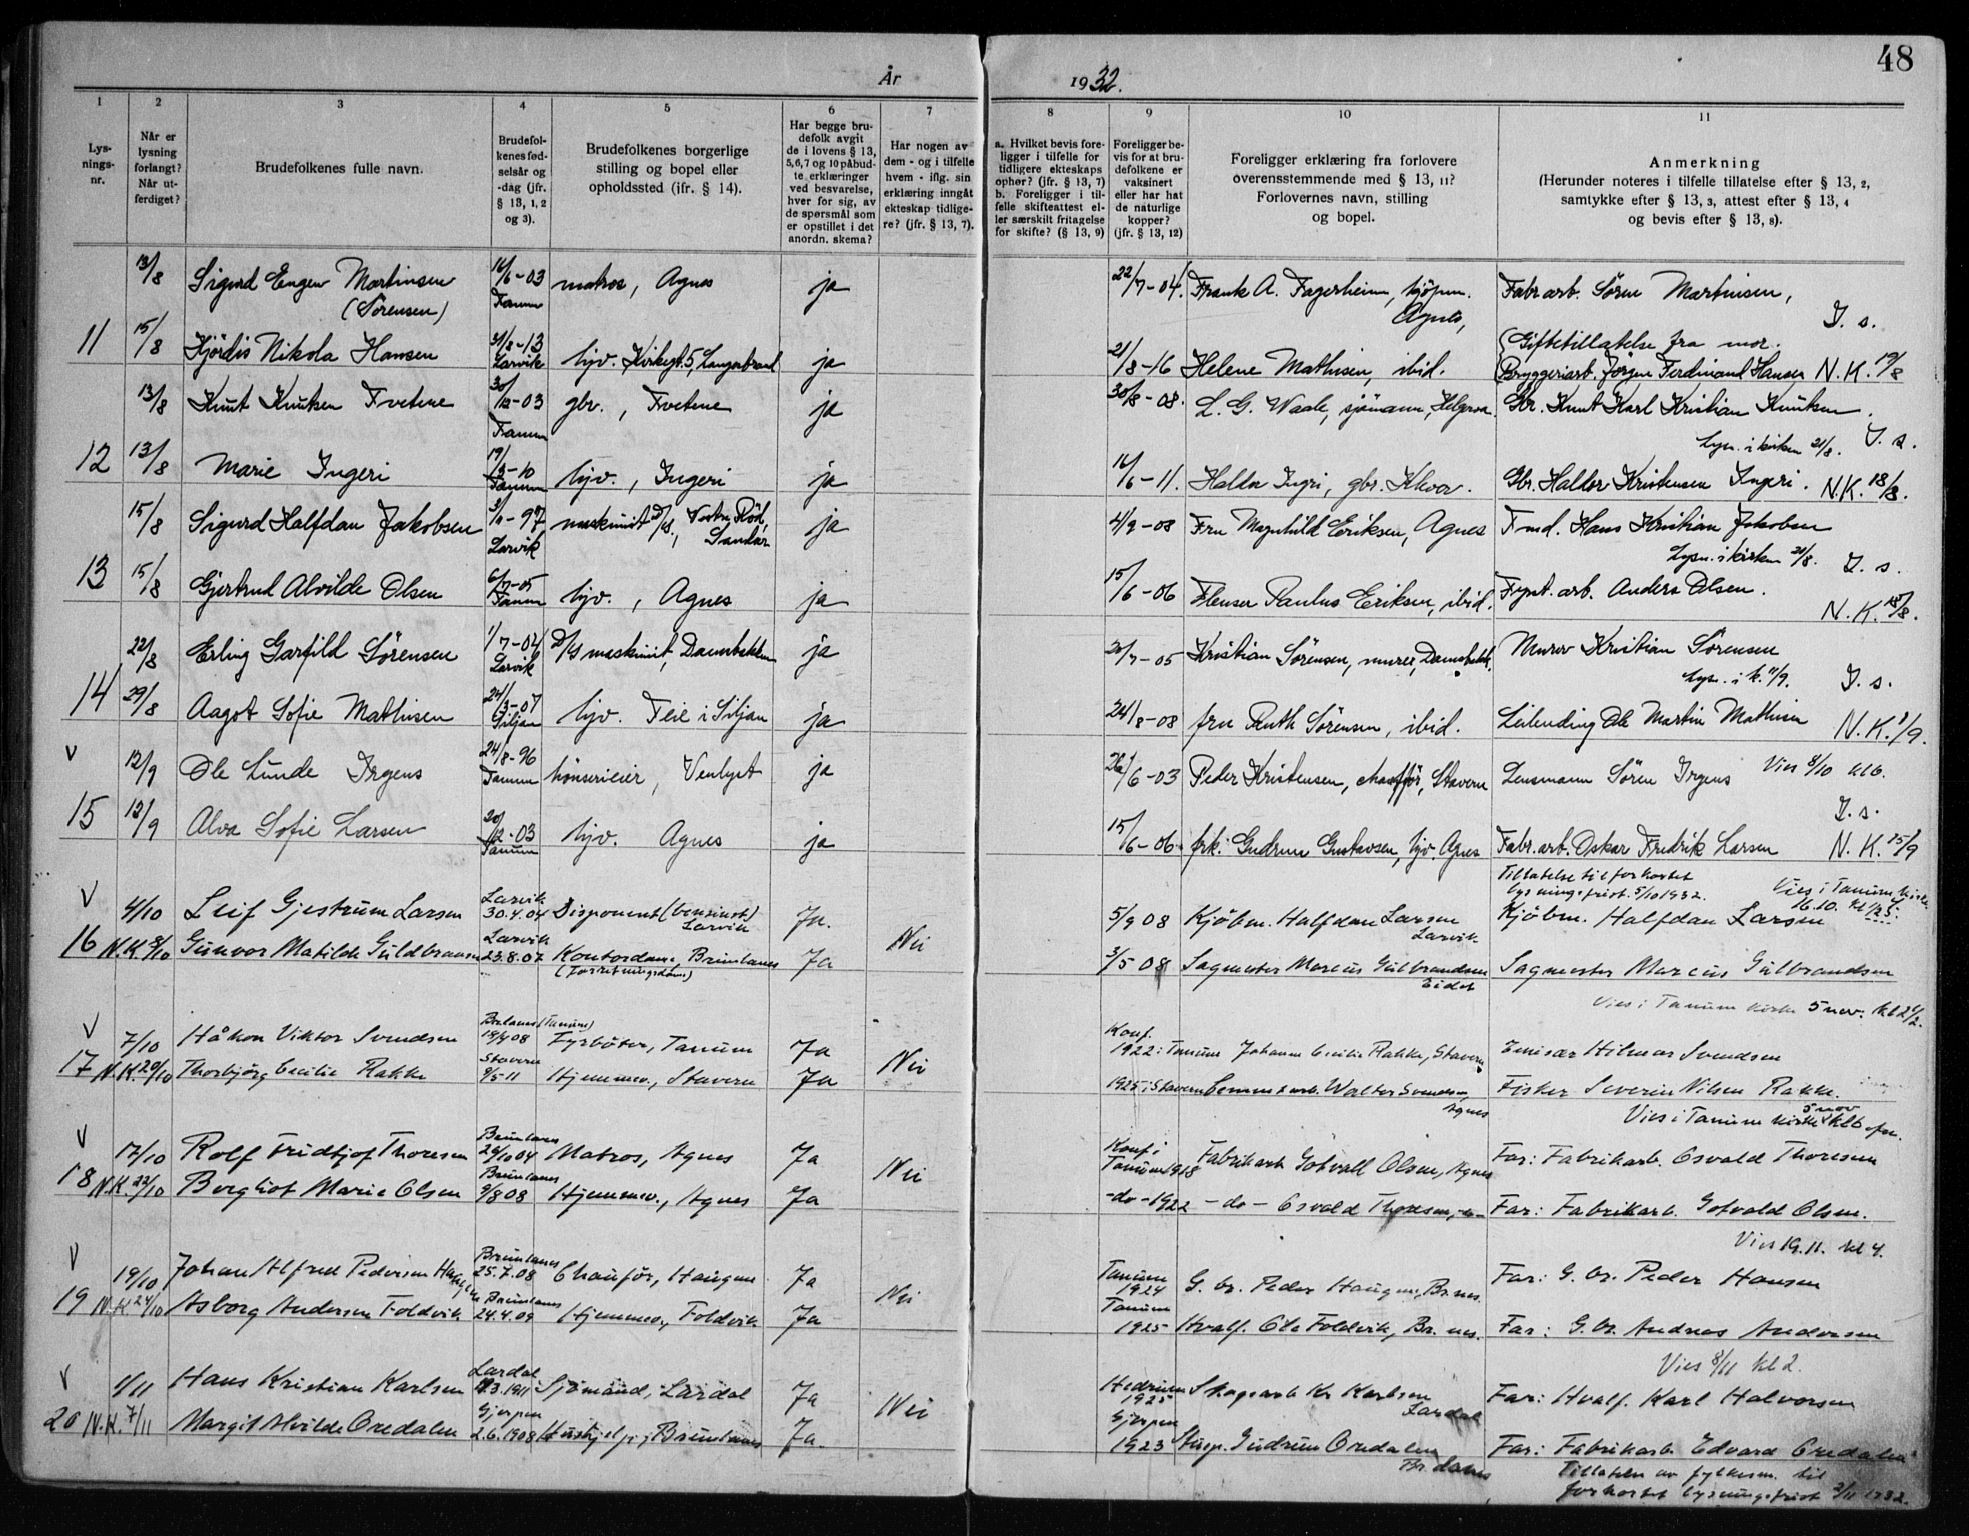 48
År 1932.
1 2 3 4 5 6 7 8 9 10 11
Lys-
nings-
nr.
Når er
lysning
forlangt?
Når ut-
ferdiget?
Brudefolkenes fulle navn.
Brudefol-
kenes fød-
selsår og
-dag (jfr.
§ 13, 1, 2
og 3).
Brudefolkenes borgerlige
stilling og bopel eller
opholdssted (jfr. § 14).
Har begge bru-
defolk avgit
de i lovens § 13,
5,6,7 og 10 påbud-
te erklæringer
ved besvarelse,
hver for sig, av
de spørsmål som
er opstillet i det
anordn. skema?
Har nogen av
dem - og i tilfelle
hvem - iflg. sin
erklæring inngått
ekteskap tidlige-
re? (jfr. § 13, 7).
a. Hvilket bevis fore-
ligger i tilfelle for
tidligere ekteskaps
ophør? (jfr. § 13, 7)
b. Foreligger i til-
felle skifteattest el-
ler særskilt fritagelse
for skifte? (§ 13, 9)
Foreligger be-
vis for at bru-
defolkene er
vaksinert
eller har hat
de naturlige
kopper?
(jfr. § 13, 12)
Foreligger erklæring fra forlovere
overensstemmende med § 13, 11?
Forlovernes navn, stilling
og bopel.
Anmerkning
(Herunder noteres i tilfelle tillatelse efter § 13, 2,
samtykke efter § 13, 3, attest efter § 13, 4
og bevis efter § 13, 8).
13/8 Sigurd Engen Martinsen 16/6-03 matros, Agnes ja 22/7-04. Frank A. Fagerheim, kjøpm. Fabr arb. Søren Martinsen,
(Sørensen) Tanum Agnes, J. s.
Giftetillatelse fra mor.
11 15/8 Hjördis Nikola Hansen 31/8-13 Larvik hjv. Kirkegt. 5, Langestrand ja 21/8-16 Helene Mathisen, ibid. Bryggeriarb. Jørgen Ferdinand Hansen N.K. 19/8
13/8 Knut Knutsen Tvetene 30/12-03 Tanum gbr., Tvetene ja 30/8-08. L. G. Waale, sjömann, Helgeroa. Gbr. Knut Karl Kristian Knutsen.
Lysn. i kirken 21/8. J. s.
12 13/8 Marie Ingeri 19/3-10 Tanum hjv., Ingeri ja 16/6-11. Haldor Ingri, gbr. Gbr. Haldor Kristensen Ingeri. N.K. 18/8.
15/8 Sigurd Halfdan Jakobsen -97 Larvik maskinist D/S., Vestre Röd, Sandar ja 4/9-08 Fru Magnhild Eriksen, Agnes Tmd. Hans Kristian Jakobsen
Lysn. i kirken 21/8. J. s.
13 15/8 Gjertrud Alvilde Olsen 6/7-05 Tanum hjv., Agnes ja 15/6-06 Flenser Paulus Eriksen, ibid. Fynt. arb. Anders Olsen.
N.K. 18/8.
22/8 Erling Garfild Sörensen 1/7-04 Larvik D/S maskinist, Damsbakken ja 20/7-05 Kristian Sörensen, murer, Damsbakk. Murer Kristian Sörensen
Lysn. i k. 11/9. J. s.
14 29/8 Aagot Sofie Mathisen 24/3-07 Siljan hjv. Teie i Siljan ja 24/8-08 fru Ruth Sörensen, ibid. Leilending Ole Martin Mathisen N.K. 1/9.
v 12/9 Ole Lunde Irgens 24/8-96 Tanum hönserieier, Venlyst ja 26/6-03 Peder Kristensen, chauffør, Stavern Lensmann Sören Irgens Vies 8/10 kl 6.
J. s.
15 12/9 Alva Sofie Larsen 20/12-03 Tanum hjv. Agnes ja 15/6-06 frk. Gudrun Gustavsen, hjv. Agnes Fabr. arb. Oskar Fredrik Larsen N.K. 15/9
Tillatelse til forkortet
lysningsfrist 5/10 1932. Vies i Tanum kirke
16.10. kl 1/2 5.
v 4/10 Leif Gjestrum Larsen Larvik 30.4.04 Disponent (bensinst.) Larvik Ja. 5/9 08 Kjöbm. Halfdan Larsen Larvik Kjöbm. Halfdan Larsen
16 N.K. 8/10 Gunvor Matilde Guldbransen Larvik 23.8.07 Kontordame, Brunlanes Ja Nei 3/5 08 Sagmester Marcus Gulbrandsen Eidet Sagmester Marcus Gulbrandsen
(forretningsdame)
Vies i Tanum kirke 5 nov. kl 2 1/2.
v 7/10 Håkon Viktor Svendsen Brlanes (Tanum) 18/9 08 Fyrbøter, Tanum Ja Konf. 1922 i Tanum Johanne Cecilie Rakke, Stavern Emisær Hilmar Svendsen
17 N.K. 20/10 Thorbjörg Cecilie Rakke Stavern 9/5-11 Hjemmev., Stavern Ja Nei 1925 i Stavern Cementarb. Walter Svendsen, Agnes Fisker Severin Nilsen Rakke.
Vies i Tanum kirke 5 nov kl 6 efm.
v 17/10 Rolf Fridtjof Thoresen Brunlanes 26/10 04 Matros, Agnes Ja Konf i Tanum 1918 Fabrikarb Gotvall Olsen, Agnes Far: Fabrikarb. Osvald Thoresen
18 N.K. 22/10 Borghot Marie Olsen Brunlanes 9/8 08 Hjemmev., Agnes Ja Nei -do- 1922 -do- Osvald Thoresen, -"- Far: Fabrikarb. Gotvald Olsen.
Vies 19.11. kl 4.
v 19/10 Johan Alfred Pedersen Haugen Brunlanes 25.7.08 Chauför, Haugen Ja Tanum 1924 G. br. Peder Haugen, Br.nes. Far: G. br. Peder Hansen
19 N.K. 24/10 Asborg Andersen Foldvik Brunlanes 24.4.09 Hjemmev., Foldvik Ja Nei Tanum 1925 Hvalf. Ole Foldvik, Br. nes. Far: G. br. Andreas Andersen
Vies 8/11 kl 2.
v 1/11 Hans Kristian Karlsen Lardal 3.1911 Sjömand, Lardal Ja Hedrum 1925 Skogsarb Kr. Karlsen Lardal Far: Hvalf. Karl Halvorsen
20 N.K. 7/11 Margit Alvilde Oredalen Gjerpen 2.6.1908 Hushjelp, Brunlanes Ja. Nei Gjerpen 1923 Husp. Gudrun Oredalen Br. lanes Far: Fabrikarb Edvard Oredalen
Tillatelse av fylkesm. til
forkortet lysningsfrist 2/11 1932.